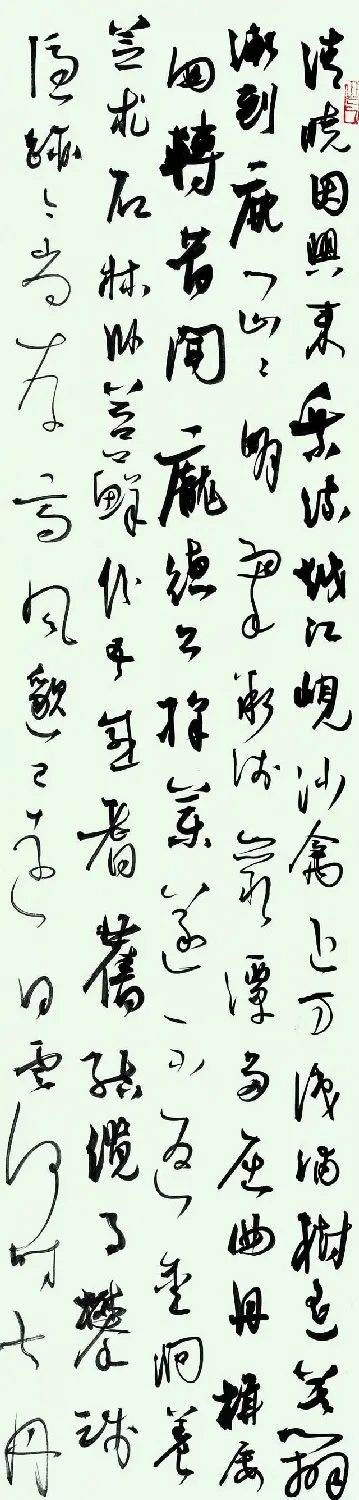 清曉因興來乘流越江峴沙禽近方識浦樹遙莫辨
漸到鹿门山々明翠微淺巖潭多屈曲舟楫屢
回轉昔聞龐德公採藥遂不返金澗養
芝朮石牀卧苔蘚紛吾感耆舊結纜事攀踐
隱跡今尚存高風邈已遠白雲何時去丹